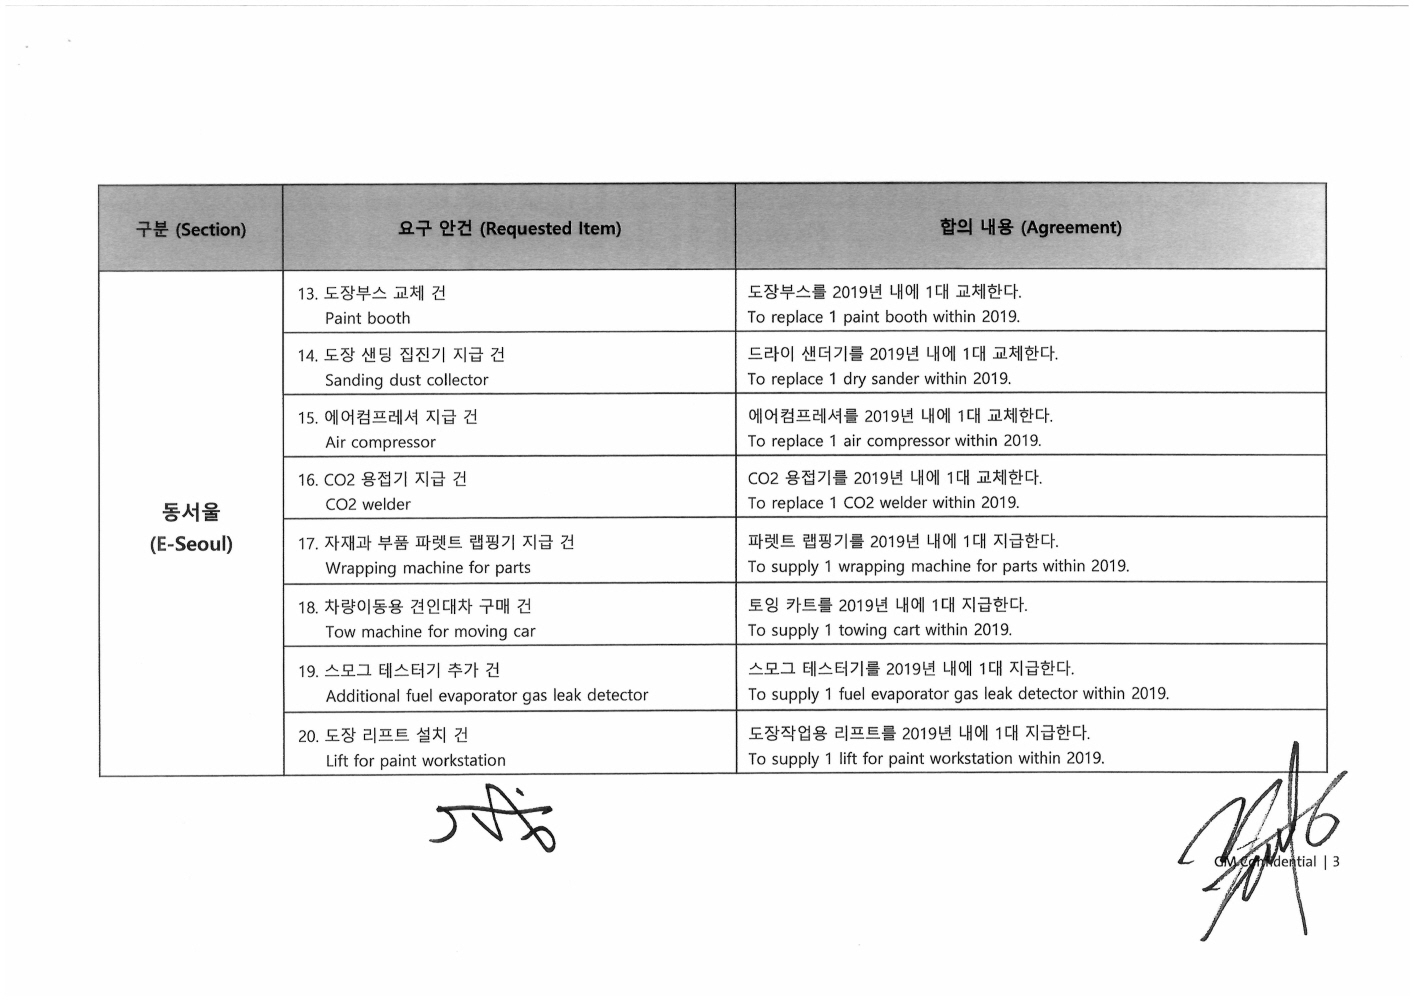 구분 (Section)
요구 안건 (Requested Item)
합의 내용 (Agreement)
동서울
(E-Seoul)
13. 도장부스 교체 건
Paint booth
도장부스를 2019년 내에 1대 교체한다.
To replace 1 paint booth within 2019.
14. 도장 샌딩 집진기 지급 건
Sanding dust collector
드라이 샌더기를 2019년 내에 1대 교체한다.
To replace 1 dry sander within 2019.
15. 에어컴프레셔 지급 건
Air compressor
에어컴프레셔를 2019년 내에 1대 교체한다.
To replace 1 air compressor within 2019.
16. CO2 용접기 지급 건
CO2 welder
CO2 용접기를 2019년 내에 1대 교체한다.
To replace 1 CO2 welder within 2019.
17. 자재과 부품 파렛트 랩핑기 지급 건
Wrapping machine for parts
파렛트 랩핑기를 2019년 내에 1대 지급한다.
To supply 1 wrapping machine for parts within 2019.
18. 차량이동용 견인대차 구매 건
Tow machine for moving car
토잉 카트를 2019년 내에 1대 지급한다.
To supply 1 towing cart within 2019.
19. 스모그 테스터기 추가 건
Additional fuel evaporator gas leak detector
스모그 테스터기를 2019년 내에 1대 지급한다.
To supply 1 fuel evaporator gas leak detector within 2019.
20. 도장 리프트 설치 건
Lift for paint workstation
도장작업용 리프트를 2019년 내에 1대 지급한다.
To supply 1 lift for paint workstation within 2019.
GM Confidential | 3